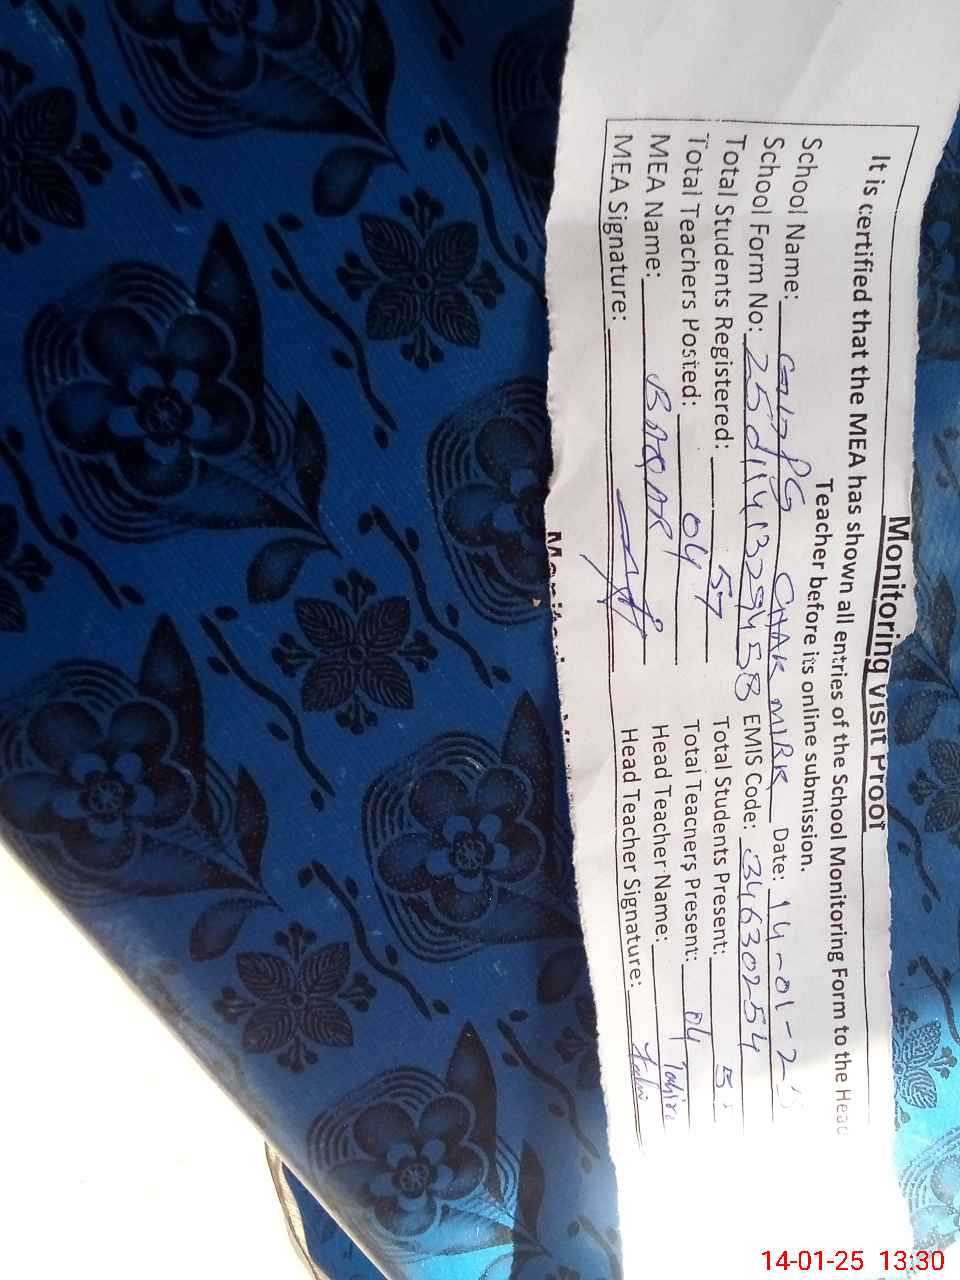 Monitoring Visit Proof
It is certified that the MEA has shown all entries of the School Monitoring Form to the Head
Teacher before its online submission.
School Name: CHAK MIRK Date: 14-01-25
School Form No: EMIS Code: 34630254
Total Students Registered: 57 Total Students Present:
Total Teachers Posted: 04 Total Teachers Present: 04
MEA Name: BAQAR Head Teacher Name:
MEA Signature: Head Teacher Signature:
14-01-25 13:30